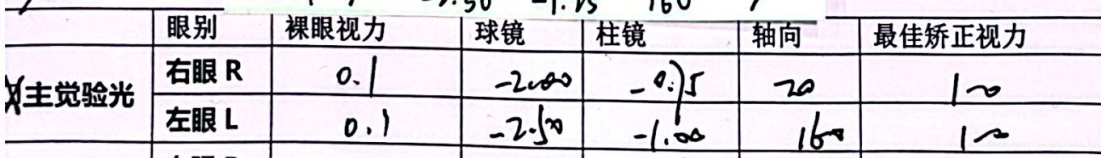 -2.50 -1.25 160
眼别 裸眼视力 球镜 柱镜 轴向 最佳矫正视力
主觉验光
右眼 R 0.1 -2.00 -0.75 20 1.0
左眼 L 0.1 -2.50 -1.00 160 1.0